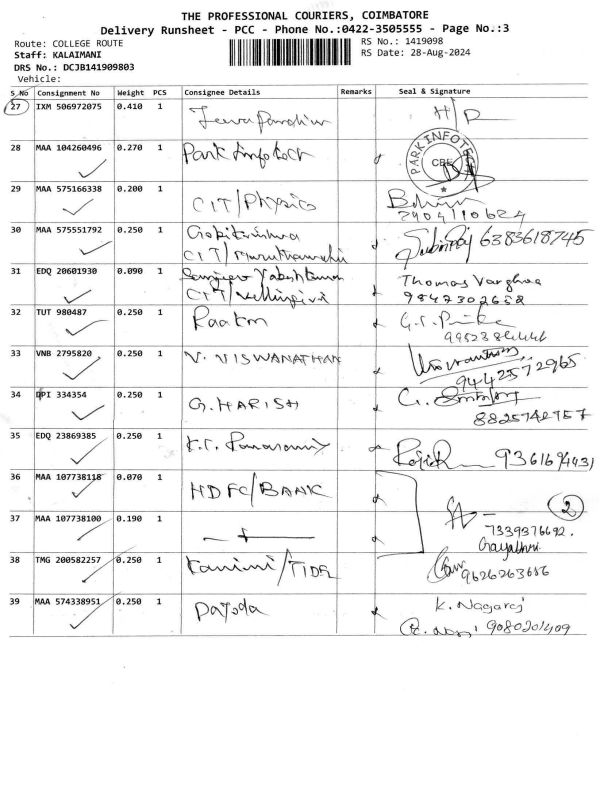 THE PROFESSIONAL COURIERS, COIMBATORE
Delivery Runsheet - PCC - Phone No.:0422-3505555 - Page No.:3
Route: COLLEGE ROUTE
RS No.: 1419098
Staff: KALAIMANI
RS Date: 28-Aug-2024
DRS No.: DCJB141909803
Vehicle:
S No Consignment No Weight PCS Consignee Details Remarks Seal & Signature
27 IXM 506972075 0.410 1
28 MAA 104260496 0.270 1 Park Infotech PARK INFOTECH CBE
29 MAA 575166338 0.200 1 CIT/Physics
30 MAA 575551792 0.250 1 6383618745
CIT/
31 EDQ 20601930 0.090 1 Thomas Varghese
CIT/
32 TUT 980487 0.250 1
33 VNB 2795820 0.250 1 V. VISWANATHAN
9442572965
34 DPI 334354 0.250 1 G. HARISH
35 EDQ 23869385 0.250 1
36 MAA 107738118 0.070 1 HDFC/BANK
2
37 MAA 107738100 0.190 1 7339376692.
Gayathri
38 TMG 200582257 0.250 1 Kanini/TIDEL
9626263656
39 MAA 574338951 0.250 1 K. Nagaraj
9080201409